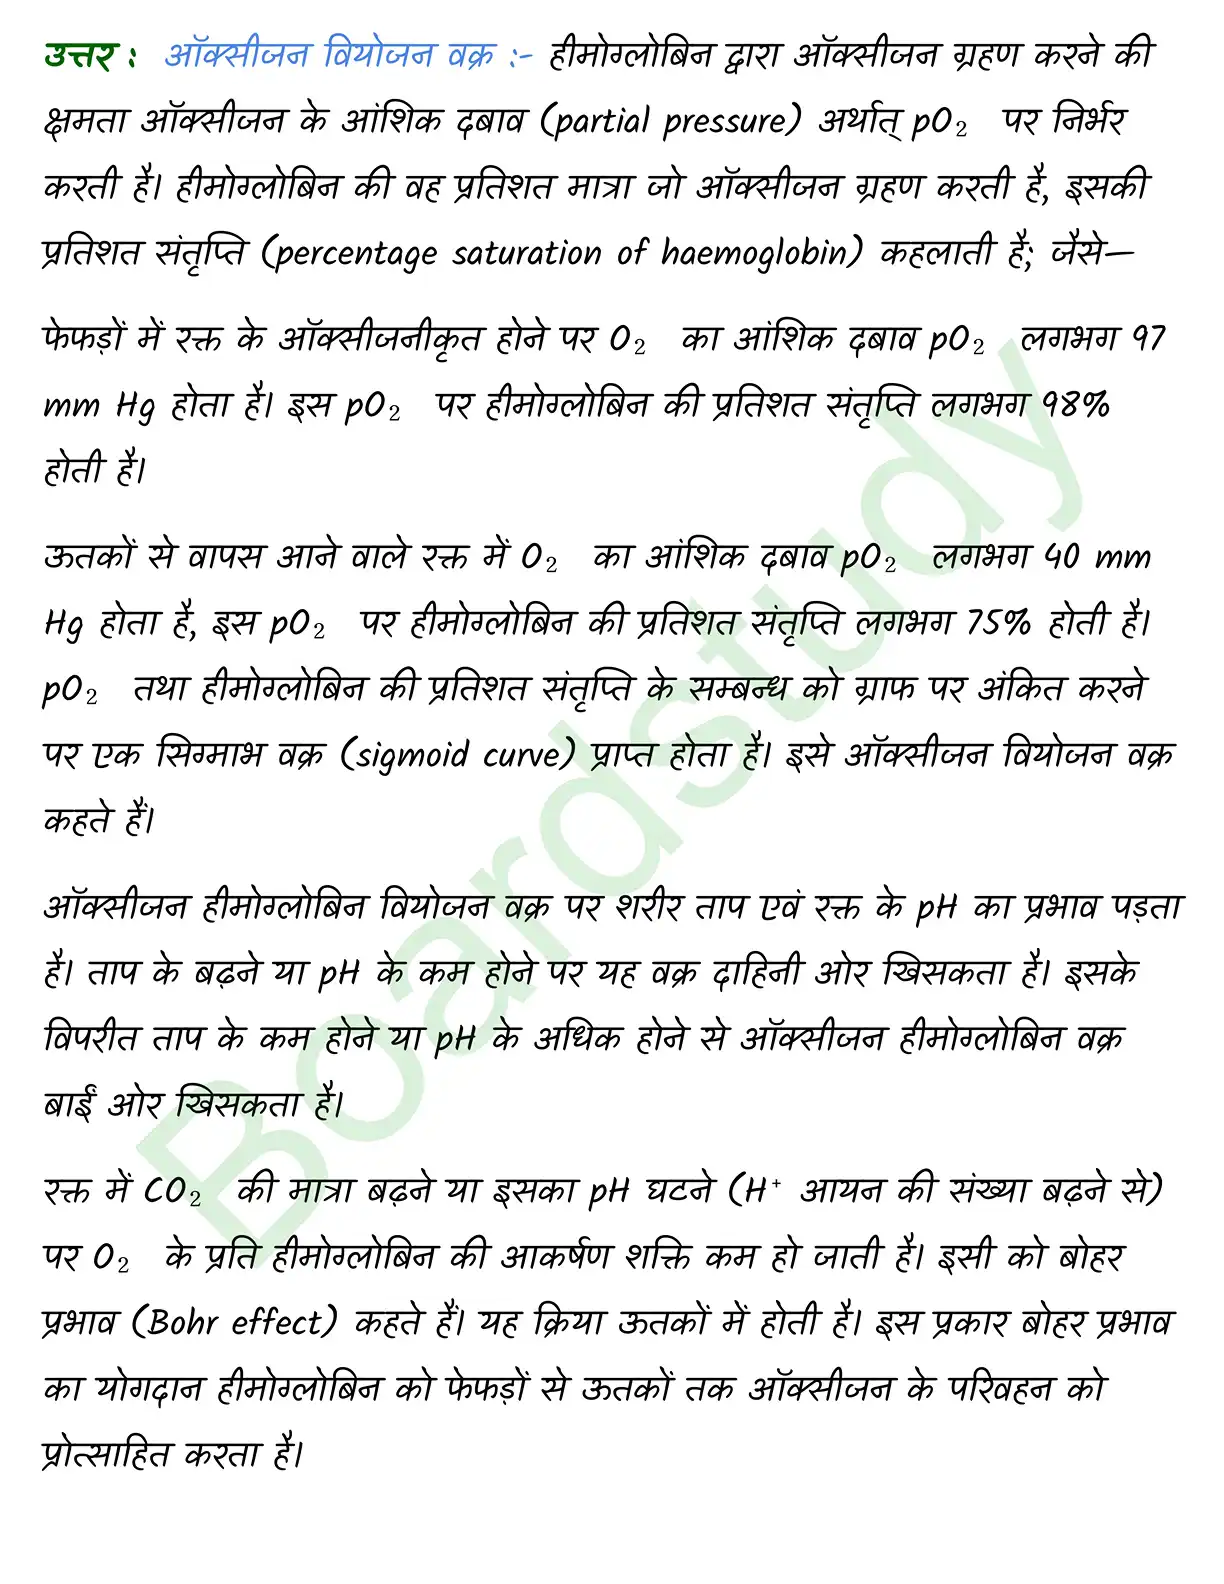 उत्तर : ऑक्सीजन वियोजन वक्र :- हीमोग्लोबिन द्वारा ऑक्सीजन ग्रहण करने की
क्षमता ऑक्सीजन के आंशिक दबाव (partial pressure) अर्थात् pO₂ पर निर्भर
करती है। हीमोग्लोबिन की वह प्रतिशत मात्रा जो ऑक्सीजन ग्रहण करती है, इसकी
प्रतिशत संतृप्ति (percentage saturation of haemoglobin) कहलाती है; जैसे—
फेफड़ों में रक्त के ऑक्सीजनीकृत होने पर O₂ का आंशिक दबाव pO₂ लगभग 97
mm Hg होता है। इस pO₂ पर हीमोग्लोबिन की प्रतिशत संतृप्ति लगभग 98%
होती है।
ऊतकों से वापस आने वाले रक्त में O₂ का आंशिक दबाव pO₂ लगभग 40 mm
Hg होता है, इस pO₂ पर हीमोग्लोबिन की प्रतिशत संतृप्ति लगभग 75% होती है।
pO₂ तथा हीमोग्लोबिन की प्रतिशत संतृप्ति के सम्बन्ध को ग्राफ पर अंकित करने
पर एक सिग्माभ वक्र (sigmoid curve) प्राप्त होता है। इसे ऑक्सीजन वियोजन वक्र
कहते हैं।
ऑक्सीजन हीमोग्लोबिन वियोजन वक्र पर शरीर ताप एवं रक्त के pH का प्रभाव पड़ता
है। ताप के बढ़ने या pH के कम होने पर यह वक्र दाहिनी ओर खिसकता है। इसके
विपरीत ताप के कम होने या pH के अधिक होने से ऑक्सीजन हीमोग्लोबिन वक्र
बाईं ओर खिसकता है।
रक्त में CO₂ की मात्रा बढ़ने या इसका pH घटने (H⁺ आयन की संख्या बढ़ने से)
पर O₂ के प्रति हीमोग्लोबिन की आकर्षण शक्ति कम हो जाती है। इसी को बोहर
प्रभाव (Bohr effect) कहते हैं। यह क्रिया ऊतकों में होती है। इस प्रकार बोहर प्रभाव
का योगदान हीमोग्लोबिन को फेफड़ों से ऊतकों तक ऑक्सीजन के परिवहन को
प्रोत्साहित करता है।
Boardstudy